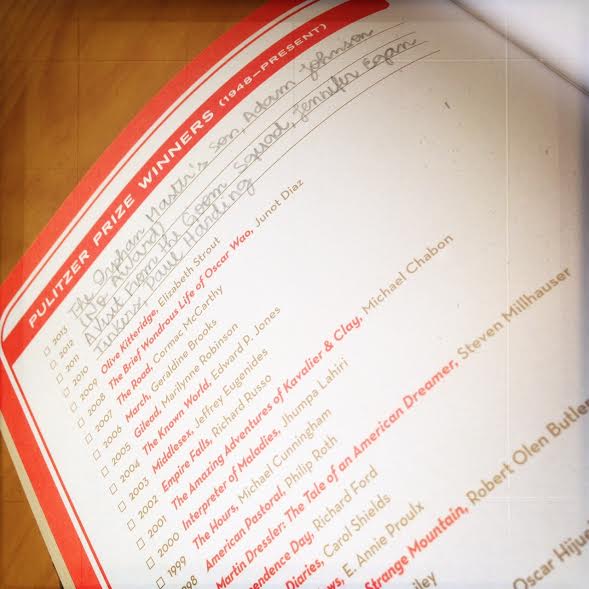 PULITZER PRIZE WINNERS (1948–PRESENT)
☐ 2013 The Orphan Master's Son, Adam Johnson
☐ 2012 (No Award)
☐ 2011 A Visit From the Goon Squad, Jennifer Egan
☐ 2010 Tinkers, Paul Harding
☐ 2009 Olive Kitteridge, Elizabeth Strout
☐ 2008 The Brief Wondrous Life of Oscar Wao, Junot Diaz
☐ 2007 The Road, Cormac McCarthy
☐ 2006 March, Geraldine Brooks
☐ 2005 Gilead, Marilynne Robinson
☐ 2004 The Known World, Edward P. Jones
☐ 2003 Middlesex, Jeffrey Eugenides
☐ 2002 Empire Falls, Richard Russo
☐ 2001 The Amazing Adventures of Kavalier & Clay, Michael Chabon
☐ 2000 Interpreter of Maladies, Jhumpa Lahiri
☐ 1999 The Hours, Michael Cunningham
98 American Pastoral, Philip Roth
Martin Dressler: The Tale of an American Dreamer, Steven Millhauser
pendence Day, Richard Ford
Diaries, Carol Shields
ws, E. Annie Proulx
Strange Mountain, Robert Olen Butler
iley
Oscar Hijue